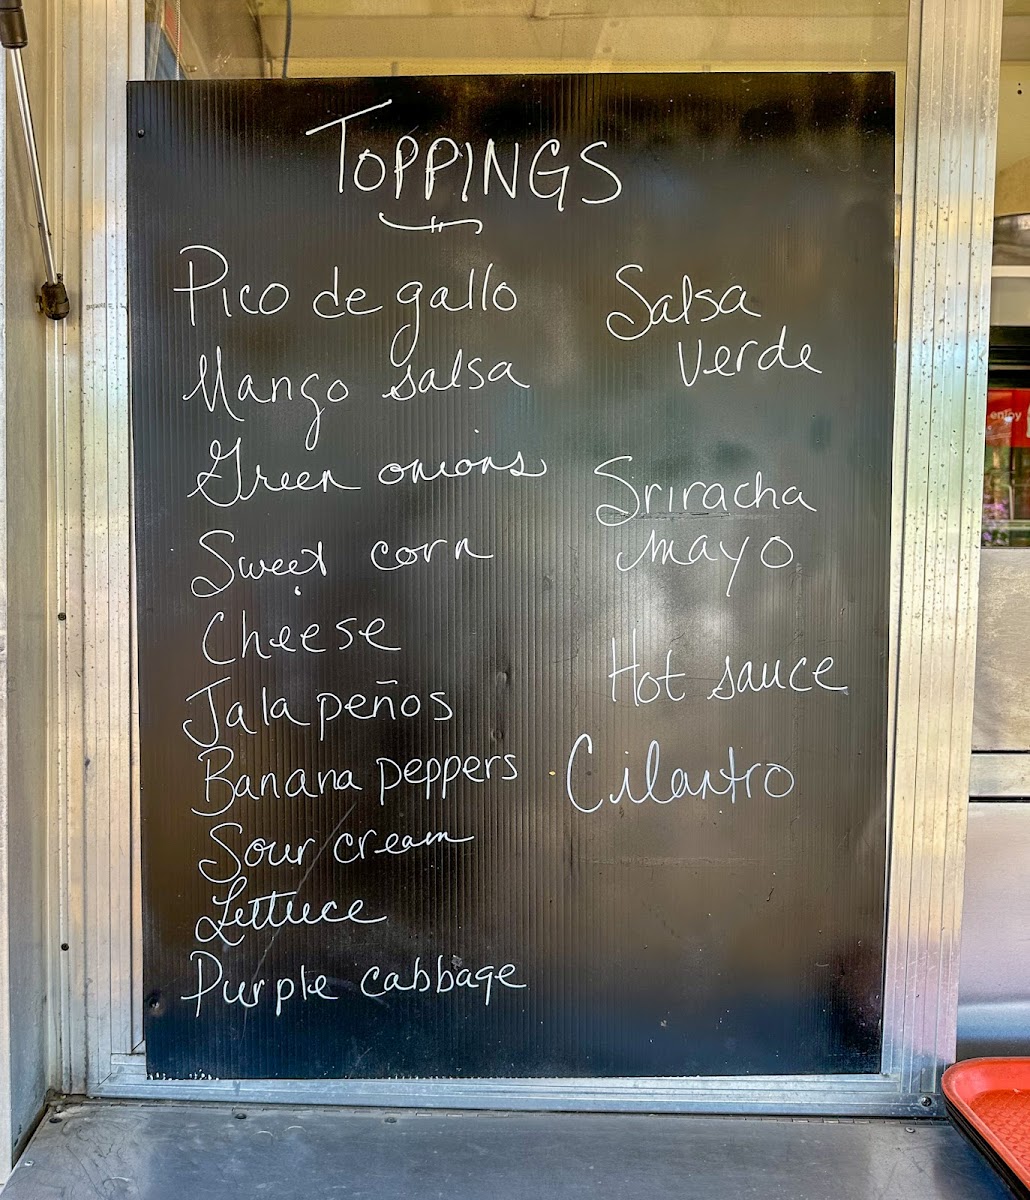 TOPPINGS
Pico de gallo
Mango salsa
Green onions
Sweet corn
Cheese
Jalapeños
Banana peppers
Sour cream
Lettuce
Purple cabbage
Salsa
verde
Sriracha
mayo
Hot sauce
Cilantro
enjoy